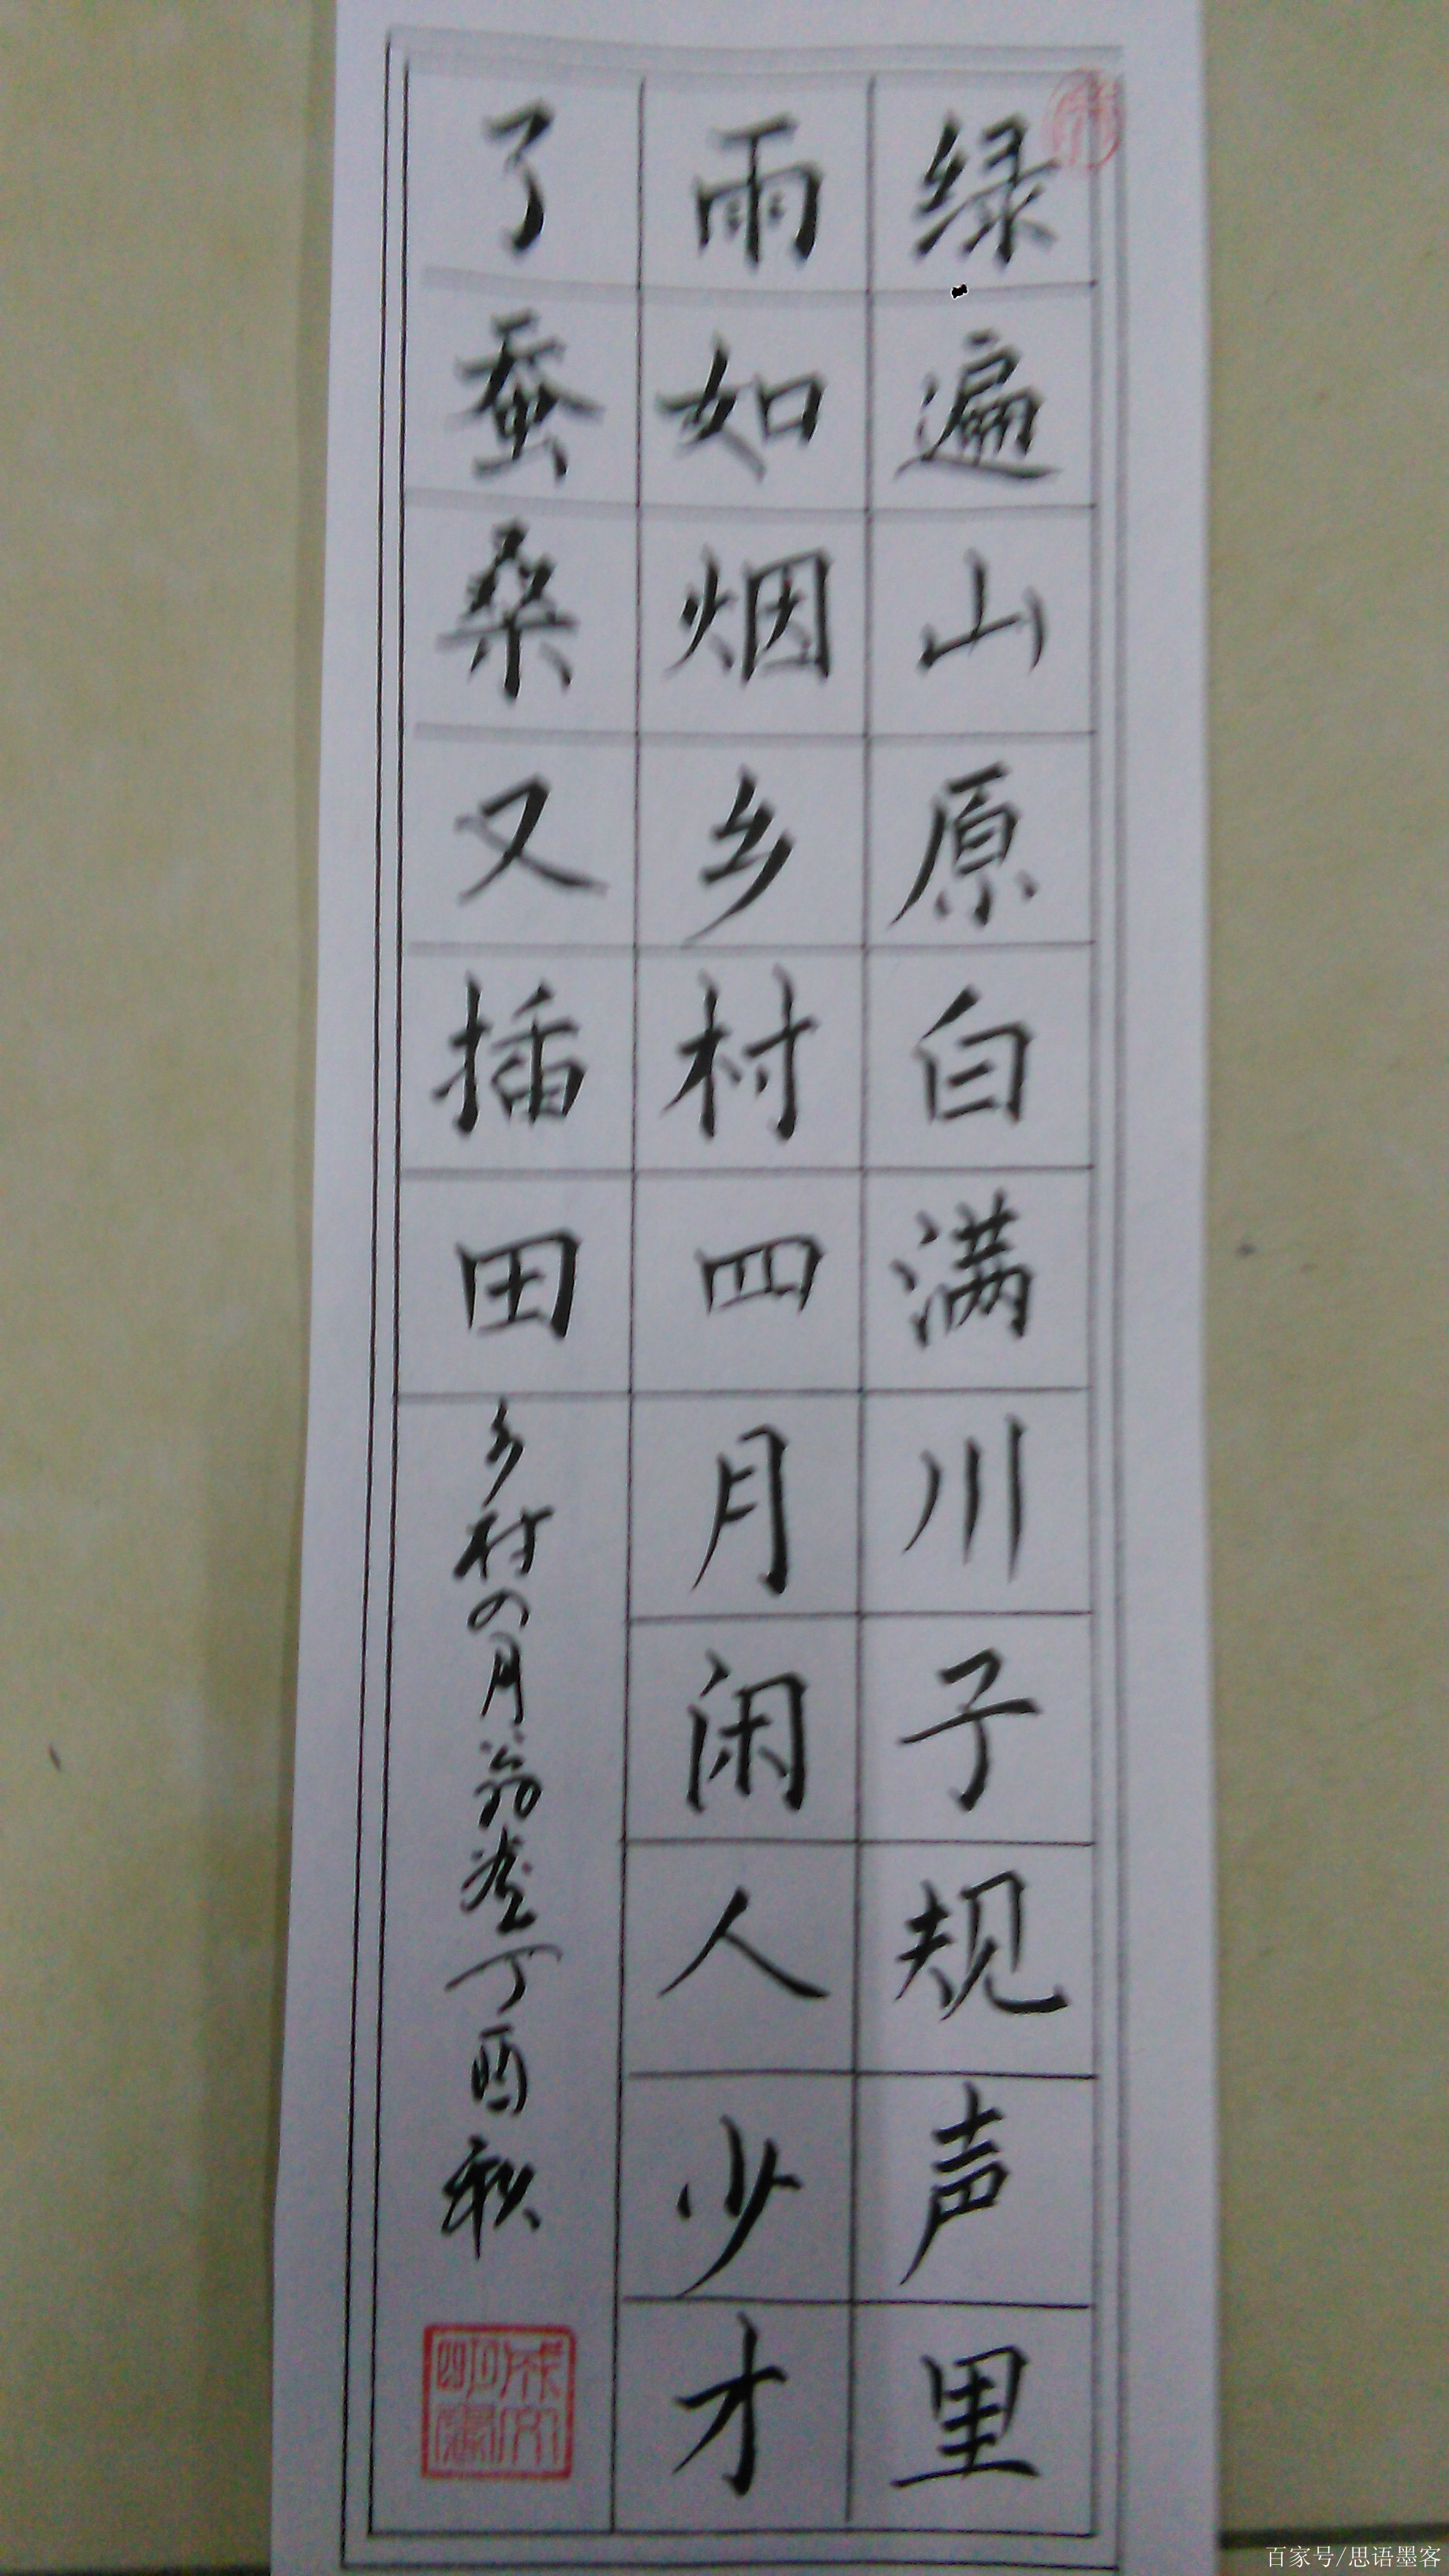 绿遍山原白满川子规声里
雨如烟乡村四月闲人少才
了蚕桑又插田
乡村四月翁卷丁酉秋
百家号/思语墨客